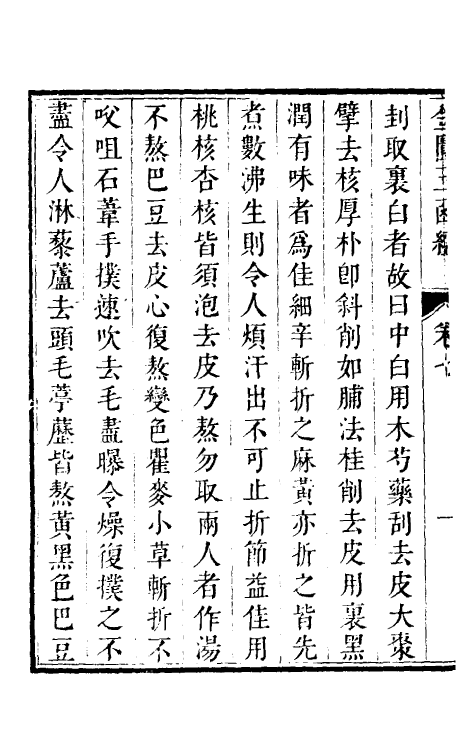 金匱玉函經 卷七 一
刲取裏白者故曰中白用木芍藥刮去皮大棗
擘去核厚朴卽斜削如脯法桂削去皮用裏黑
潤有味者爲佳細辛斬折之麻黃亦折之皆先
煮數沸生則令人煩汗出不可止折節益佳用
桃核杏核皆須泡去皮乃熬勿取兩人者作湯
不熬巴豆去皮心復熬變色瞿麥小草斬折不
㕮咀石葦手撲速吹去毛盡曝令燥復撲之不
盡令人淋藜蘆去頭毛葶藶皆熬黃黑色巴豆